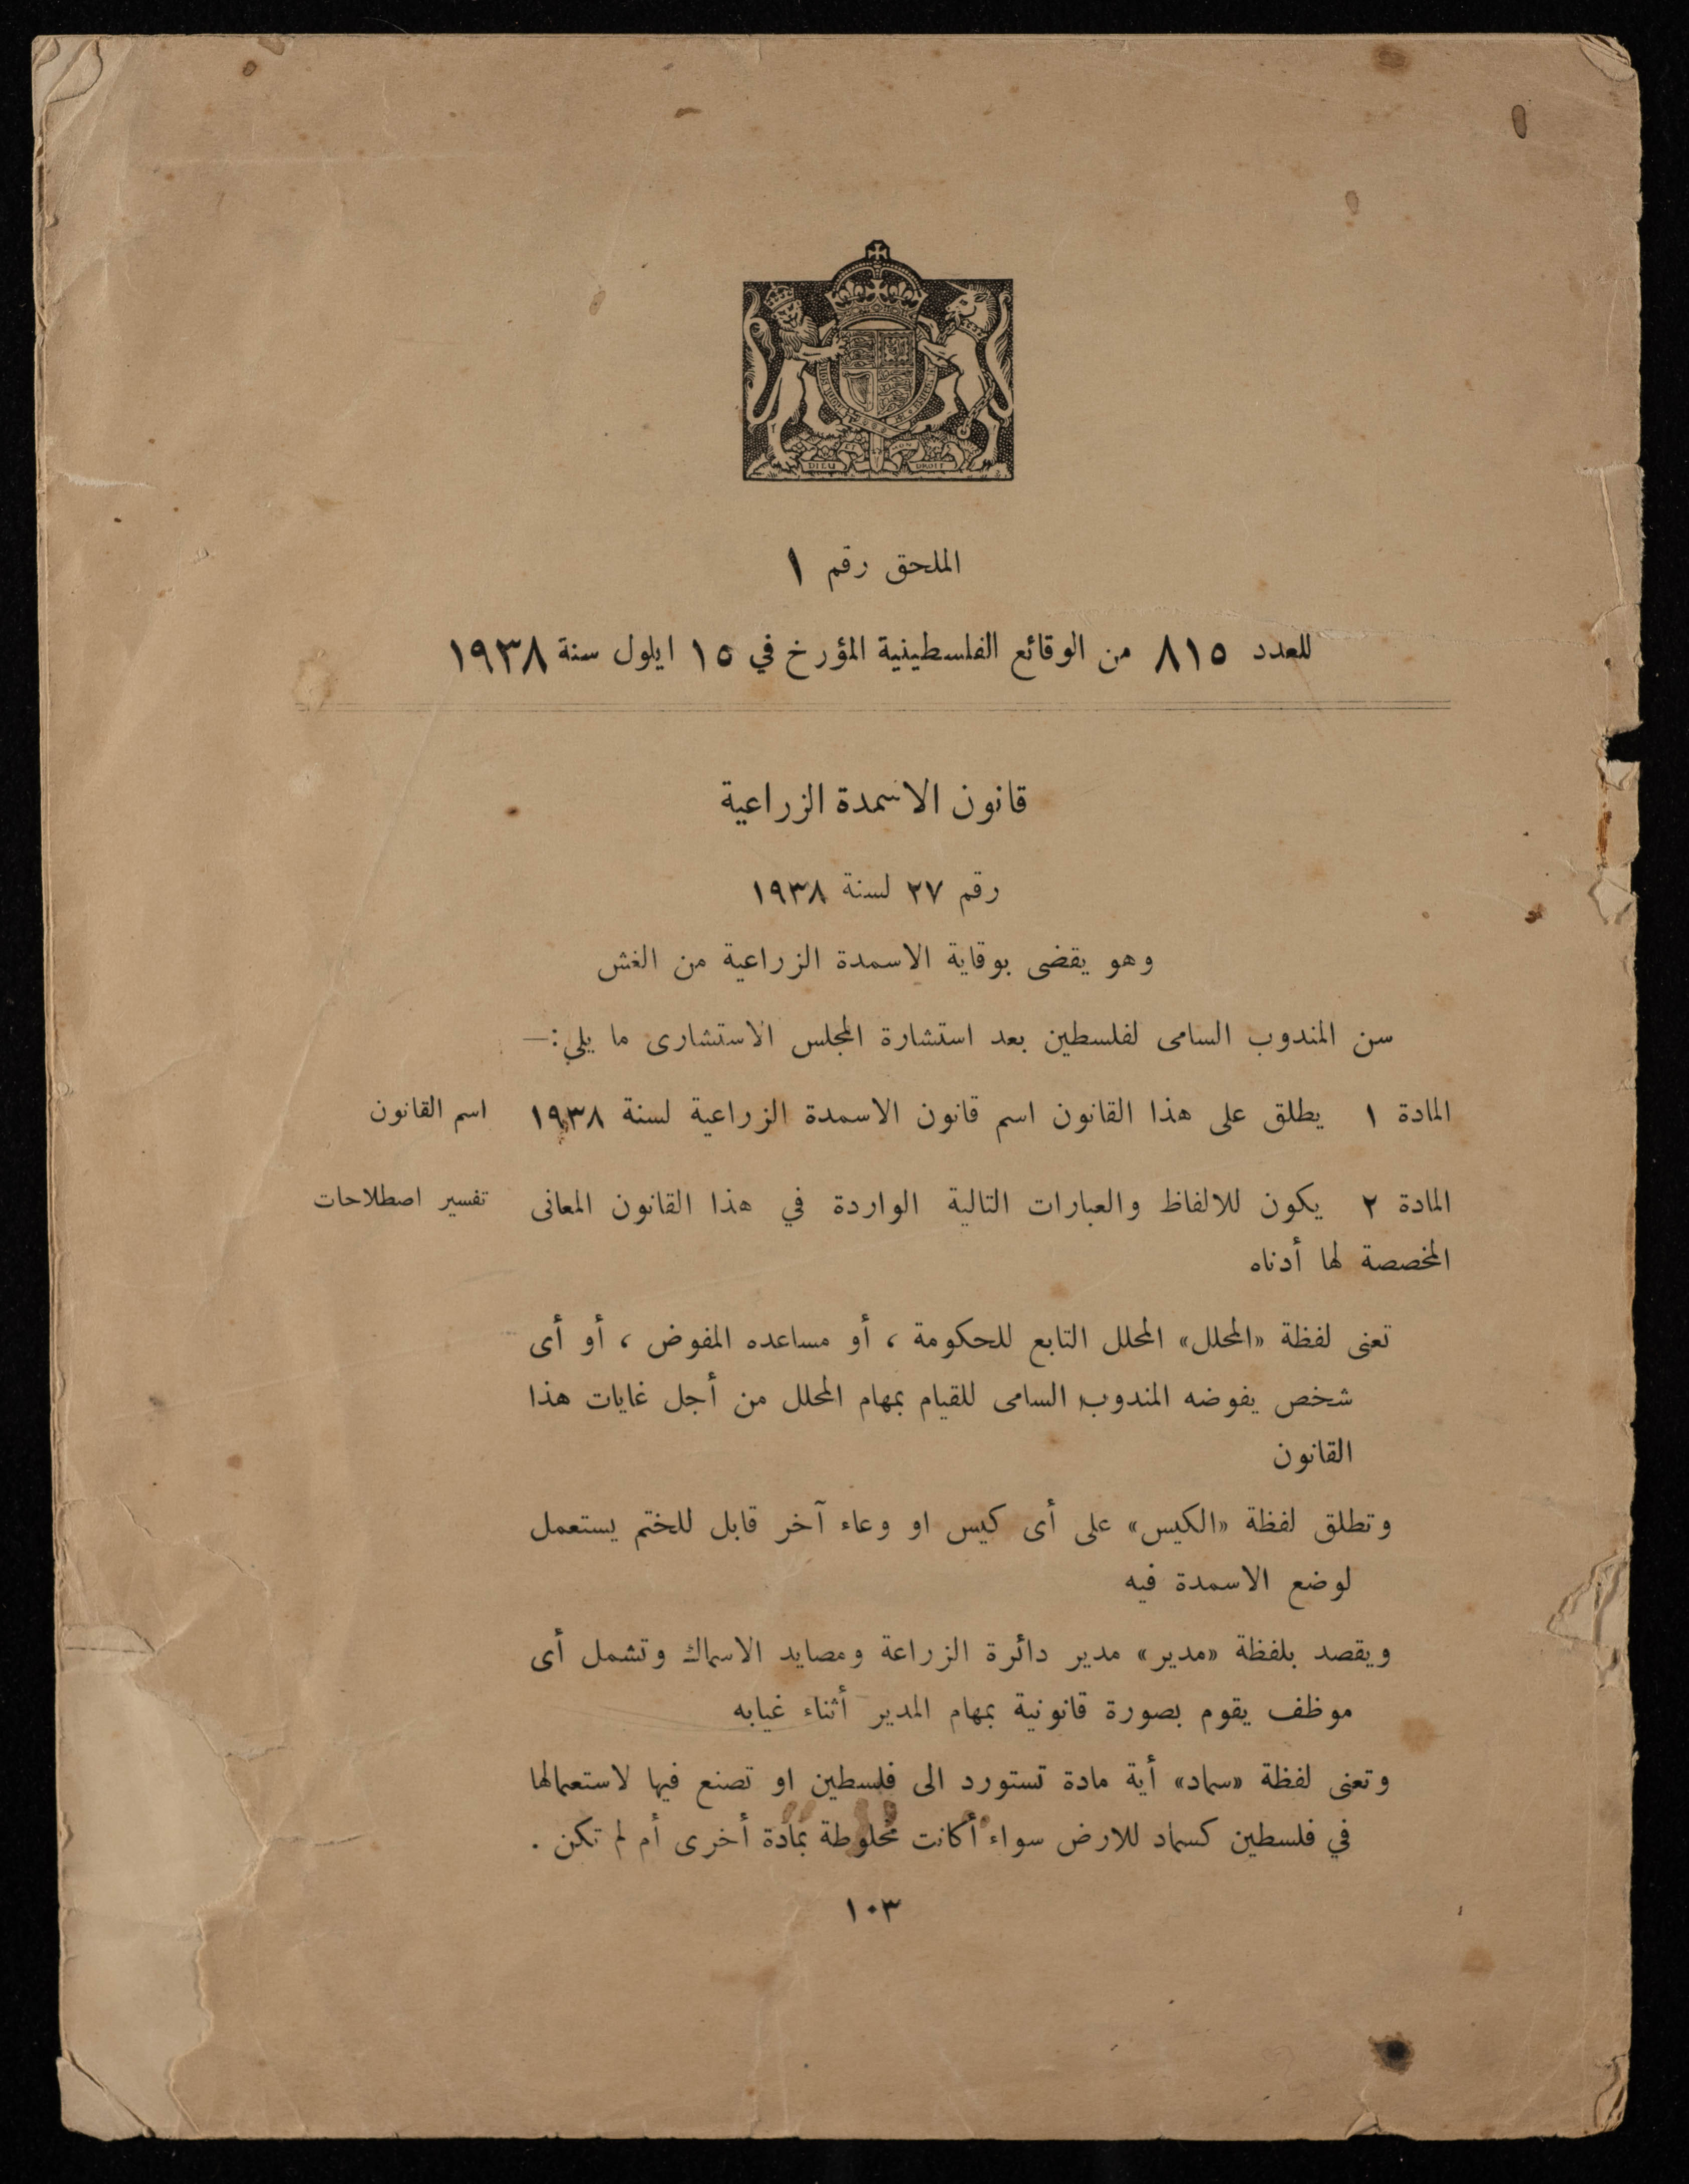 DIEU DROIT
الملحق رقم ١
للعدد ٨١٥ من الوقائع الفلسطينية المؤرخ في ١٥ ايلول سنة ١٩٣٨
قانون الاسمدة الزراعية
رقم ٢٧ لسنة ١٩٣٨
وهو يقضى بوقاية الاسمدة الزراعية من الغش
سن المندوب السامى لفلسطين بعد استشارة المجلس الاستشارى ما يلي:—
المادة ١ يطلق على هذا القانون اسم قانون الاسمدة الزراعية لسنة ١٩٣٨ اسم القانون
المادة ٢ يكون للالفاظ والعبارات التالية الواردة في هذا القانون المعانى تفسير اصطلاحات
المخصصة لها أدناه
تعنى لفظة «المحلل» المحلل التابع للحكومة ، أو مساعده المفوض ، أو أى
شخص يفوضه المندوب السامى للقيام بمهام المحلل من أجل غايات هذا
القانون
وتطلق لفظة «الكيس» على أى كيس او وعاء آخر قابل للختم يستعمل
لوضع الاسمدة فيه
ويقصد بلفظة «مدير» مدير دائرة الزراعة ومصايد الاسماك وتشمل أى
موظف يقوم بصورة قانونية بمهام المدير أثناء غيابه
وتعنى لفظة «سماد» أية مادة تستورد الى فلسطين او تصنع فيها لاستعمالها
في فلسطين كسماد للارض سواء أكانت مخلوطة بمادة أخرى أم لم تكن .
١٠٣